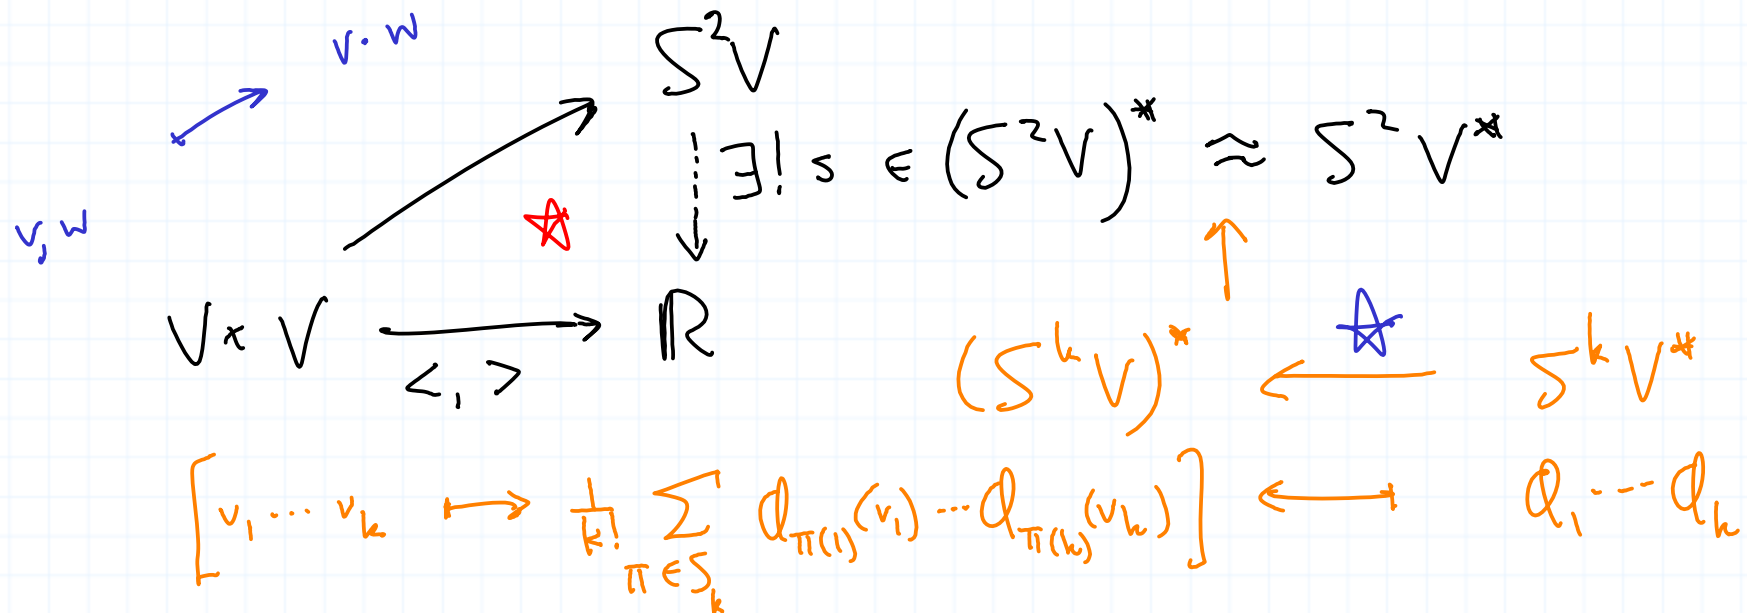 v · w
S²V
∃! s ∈ (S²V)* ≈ S²V*
v, w
V × V
ℝ
<,>
(SᵏV)* ← SᵏV*
[v₁ ⋯ vₖ ↦ 1/k! ∑_{π∈Sₖ} φ_{π(1)}(v₁) ⋯ φ_{π(k)}(vₖ)] ↤ φ₁ ⋯ φₖ